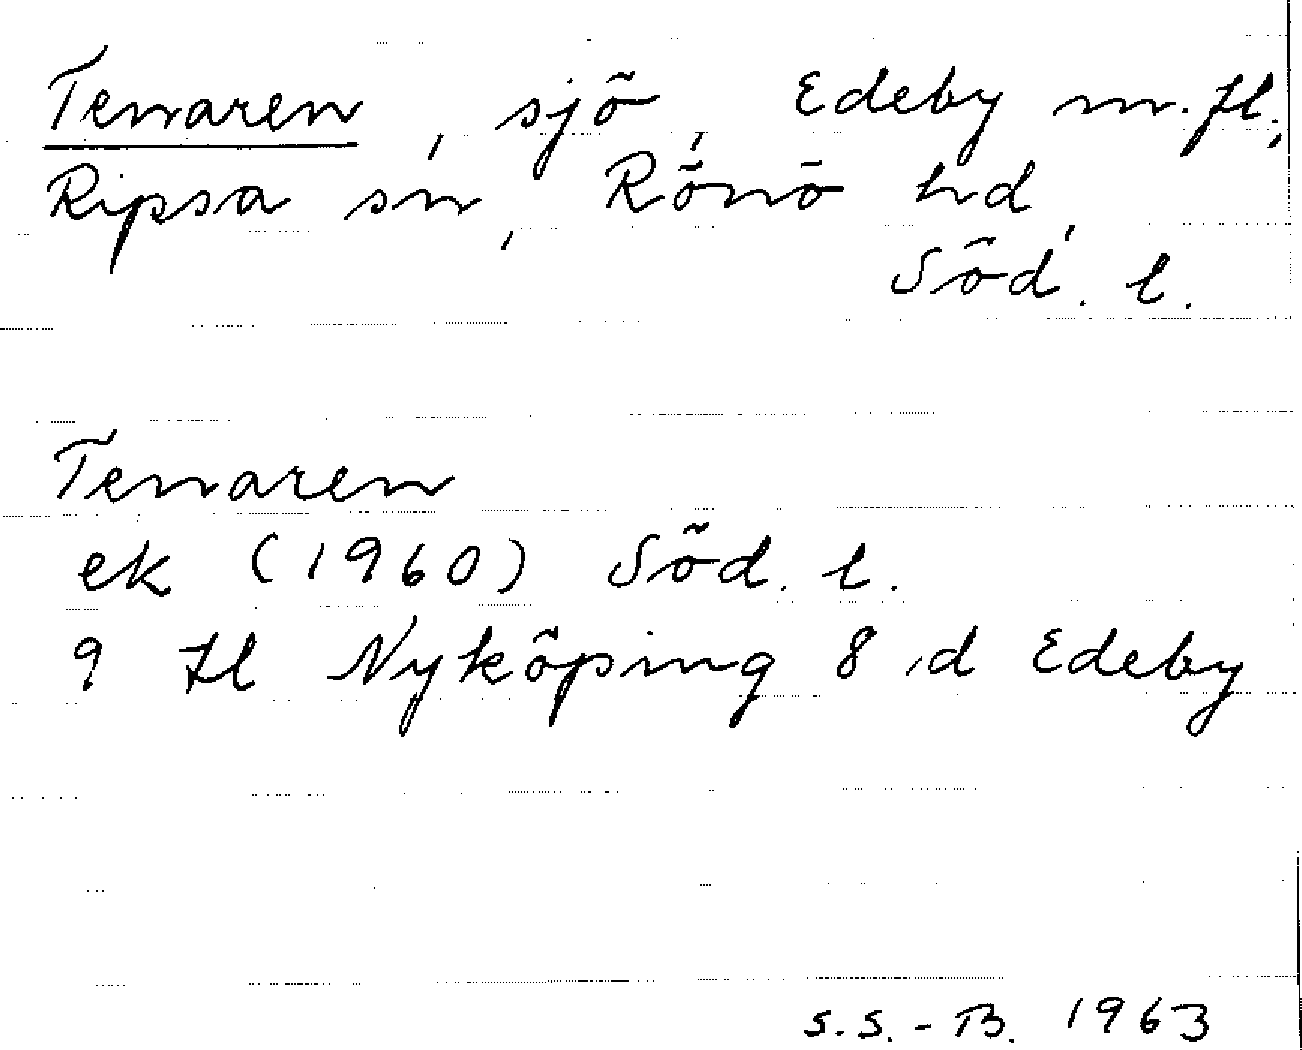 Tenaren, sjö, Edeby m.fl.,
Ripsa sn, Rönö hd,
Söd. l.
Tenaren
ek (1960) Söd. l.
9 fl Nyköping 8 d Edeby
S.S.-B. 1963